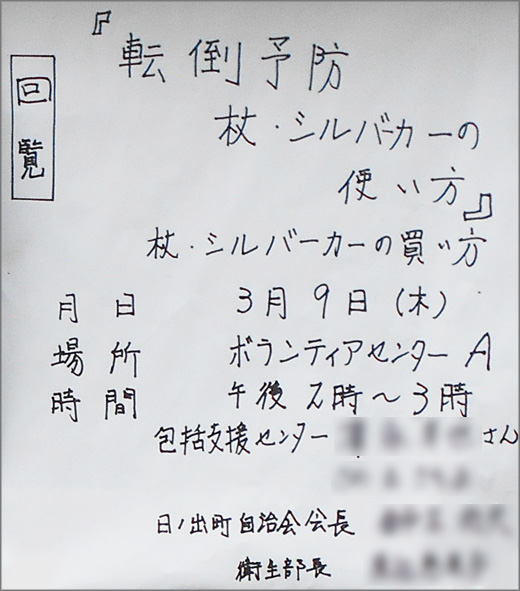 回覧
『転倒予防
杖・シルバーカーの
使い方』
杖・シルバーカーの買い方
月日 3月9日(木)
場所 ボランティアセンターA
時間 午後2時～3時
包括支援センター さん
日ノ出町自治会会長
衛生部長